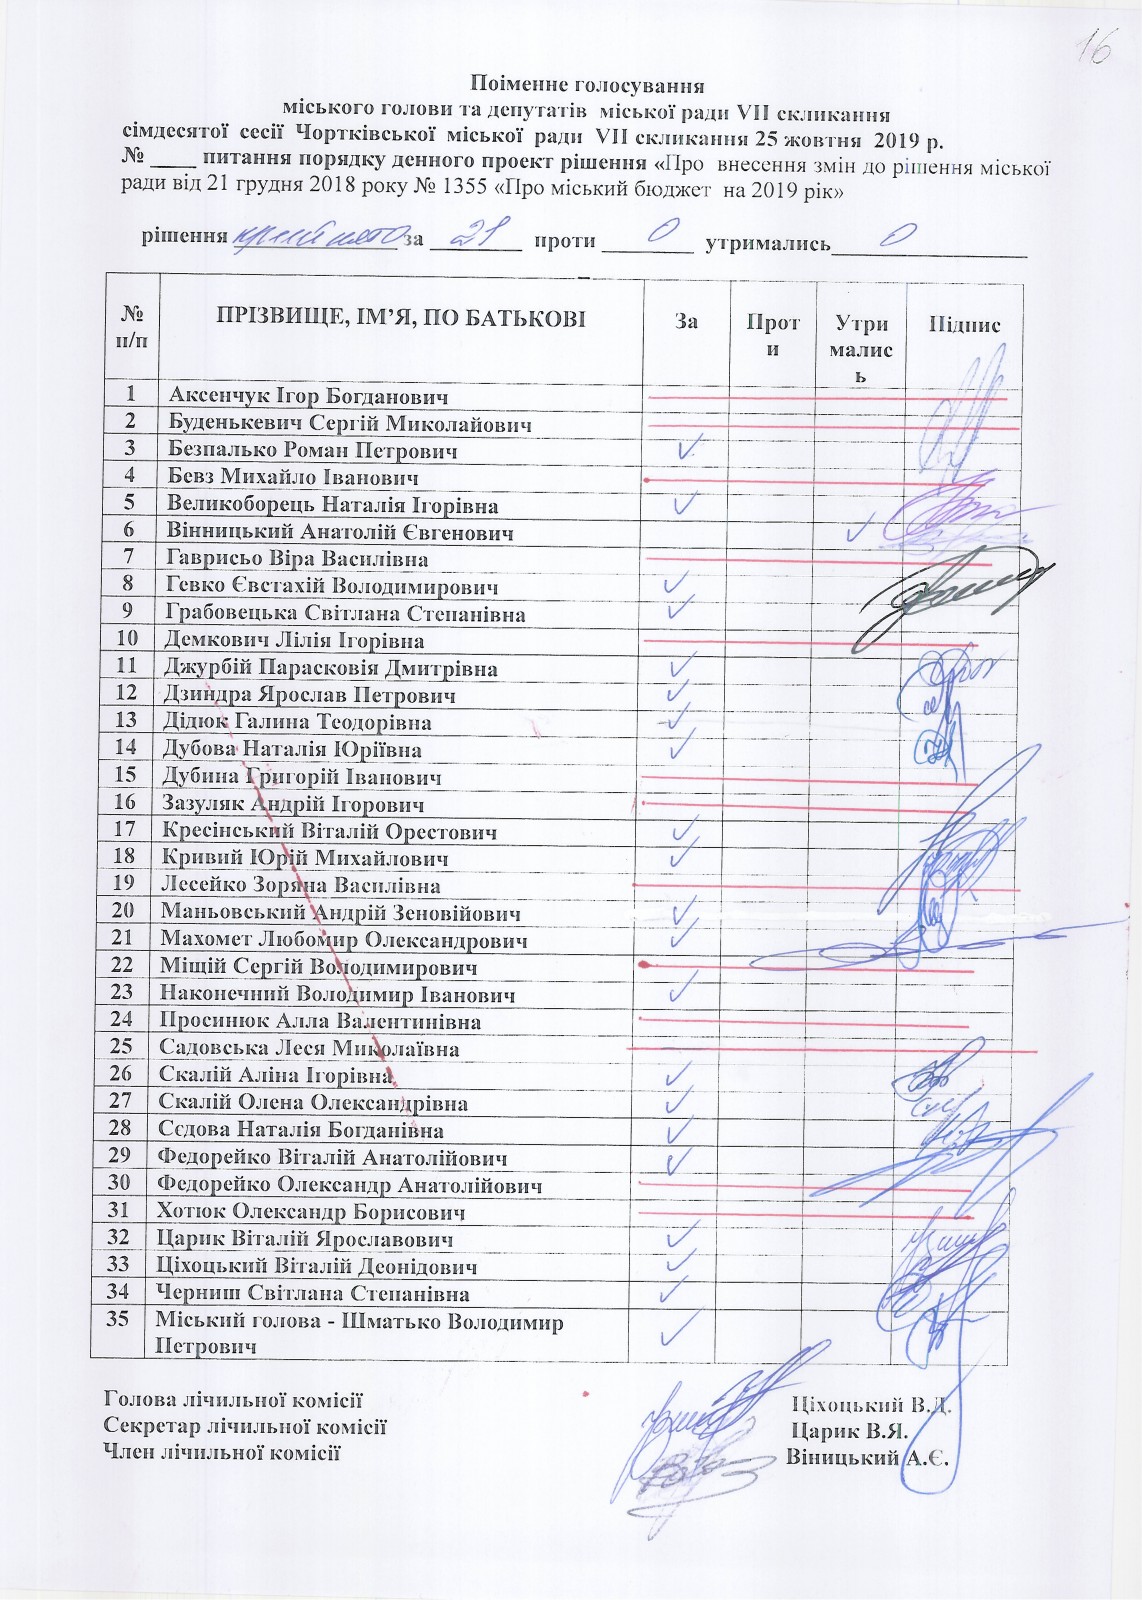 16
Поіменне голосування
міського голови та депутатів міської ради VII скликання
сімдесятої сесії Чортківської міської ради VII скликання 25 жовтня 2019 р.
№ ____ питання порядку денного проект рішення «Про внесення змін до рішення міської
ради від 21 грудня 2018 року № 1355 «Про міський бюджет на 2019 рік»
рішення прийнято за 21 проти 0 утримались 0
№ п/п ПРІЗВИЩЕ, ІМ’Я, ПО БАТЬКОВІ За Проти Утрималис ь Підпис
1 Аксенчук Ігор Богданович
2 Буденькевич Сергій Миколайович
3 Безпалько Роман Петрович ✓
4 Бевз Михайло Іванович
5 Великоборець Наталія Ігорівна ✓
6 Вінницький Анатолій Євгенович ✓
7 Гаврисьо Віра Василівна
8 Гевко Євстахій Володимирович ✓
9 Грабовецька Світлана Степанівна ✓
10 Демкович Лілія Ігорівна
11 Джурбій Парасковія Дмитрівна ✓
12 Дзиндра Ярослав Петрович ✓
13 Дідюк Галина Теодорівна ✓
14 Дубова Наталія Юріївна ✓
15 Дубина Григорій Іванович
16 Зазуляк Андрій Ігорович
17 Кресінський Віталій Орестович ✓
18 Кривий Юрій Михайлович ✓
19 Лесейко Зоряна Василівна
20 Маньовський Андрій Зеновійович ✓
21 Махомет Любомир Олександрович ✓
22 Міщій Сергій Володимирович
23 Наконечний Володимир Іванович ✓
24 Просинюк Алла Валентинівна
25 Садовська Леся Миколаївна
26 Скалій Аліна Ігорівна ✓
27 Скалій Олена Олександрівна ✓
28 Сєдова Наталія Богданівна ✓
29 Федорейко Віталій Анатолійович ✓
30 Федорейко Олександр Анатолійович
31 Хотюк Олександр Борисович
32 Царик Віталій Ярославович ✓
33 Ціхоцький Віталій Деонідович ✓
34 Черниш Світлана Степанівна ✓
35 Міський голова - Шматько Володимир
Петрович ✓
Голова лічильної комісії Ціхоцький В.Д.
Секретар лічильної комісії Царик В.Я.
Член лічильної комісії Віницький А.Є.